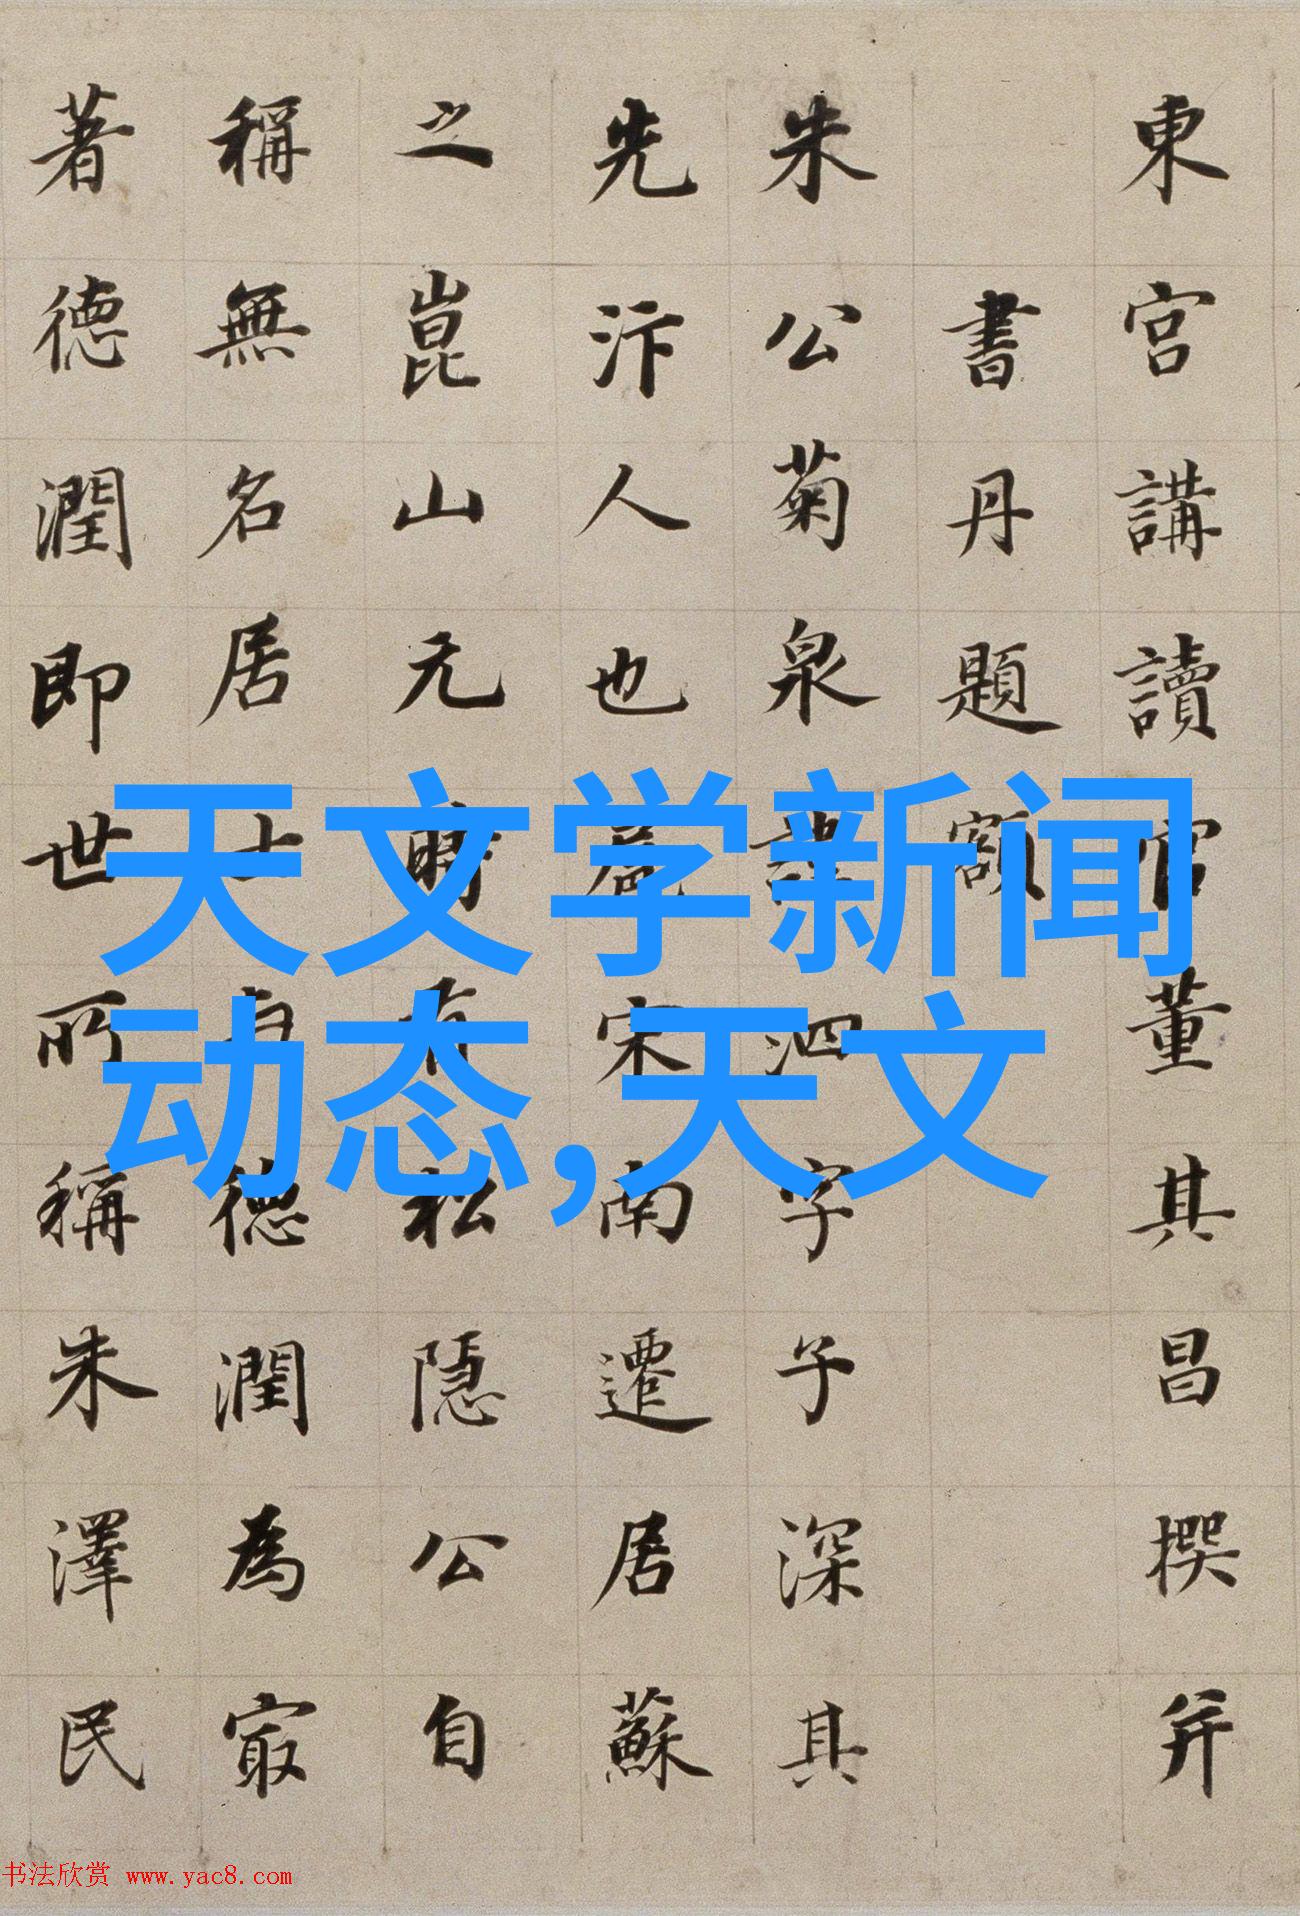 東宮講讀官董其昌撰并
書丹題額
朱公菊泉諱泗字子深其
先汴人也蓋宋南遷居蘇
之崑山元時有松隱公自
稱無名居士与德潤為最
著德潤即世所稱朱澤民
天文学新闻
动态,天文
书法欣赏 www.yac8.com